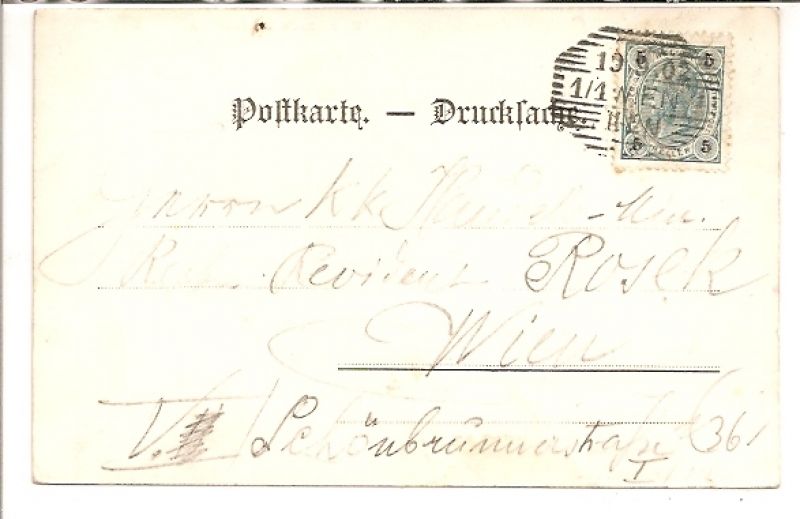 Postkarte. — Drucksache.
5 5
5 5
HELLER
1/1
WIEN
02
Herrn K K
Revident Rosek
Wien
V. Schönbrunnerstraße 36
I